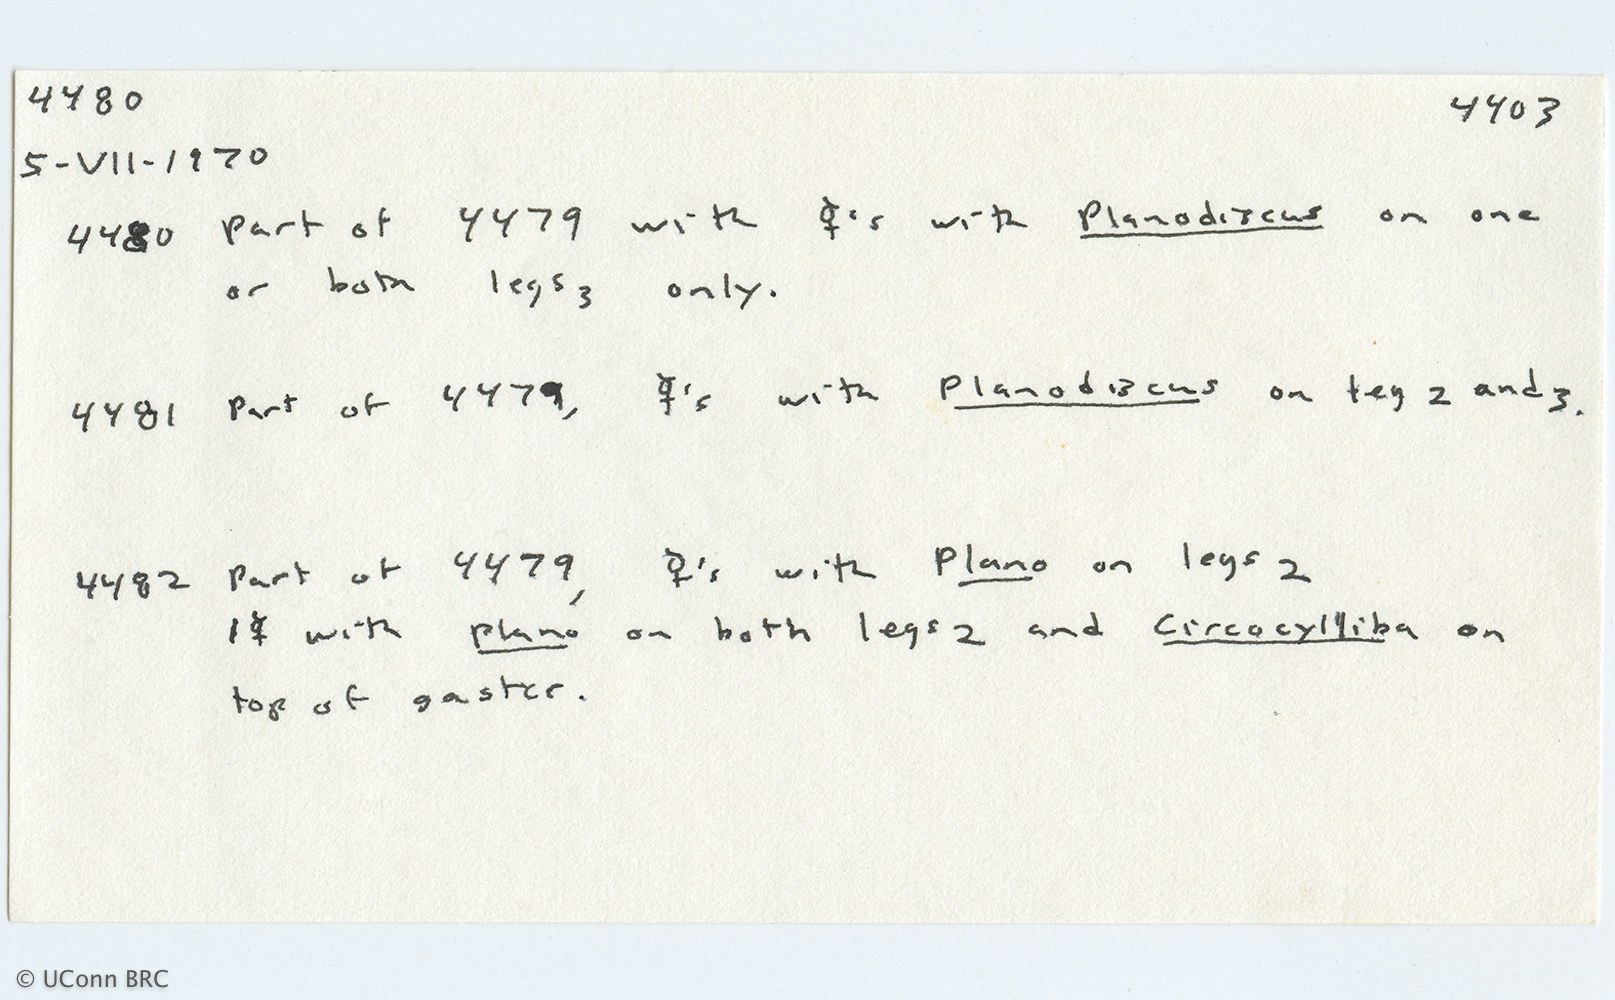 4480
4403
5-VII-1970
4480 Part of 4479 with ☿'s with Planodiscus on one
or both legs 3 only.
4481 Part of 4479, ☿'s with Planodiscus on leg 2 and 3.
4482 Part of 4479, ☿'s with Plano on legs 2
1☿ with plano on both legs 2 and Circocylliba on
top of gaster.
© UConn BRC